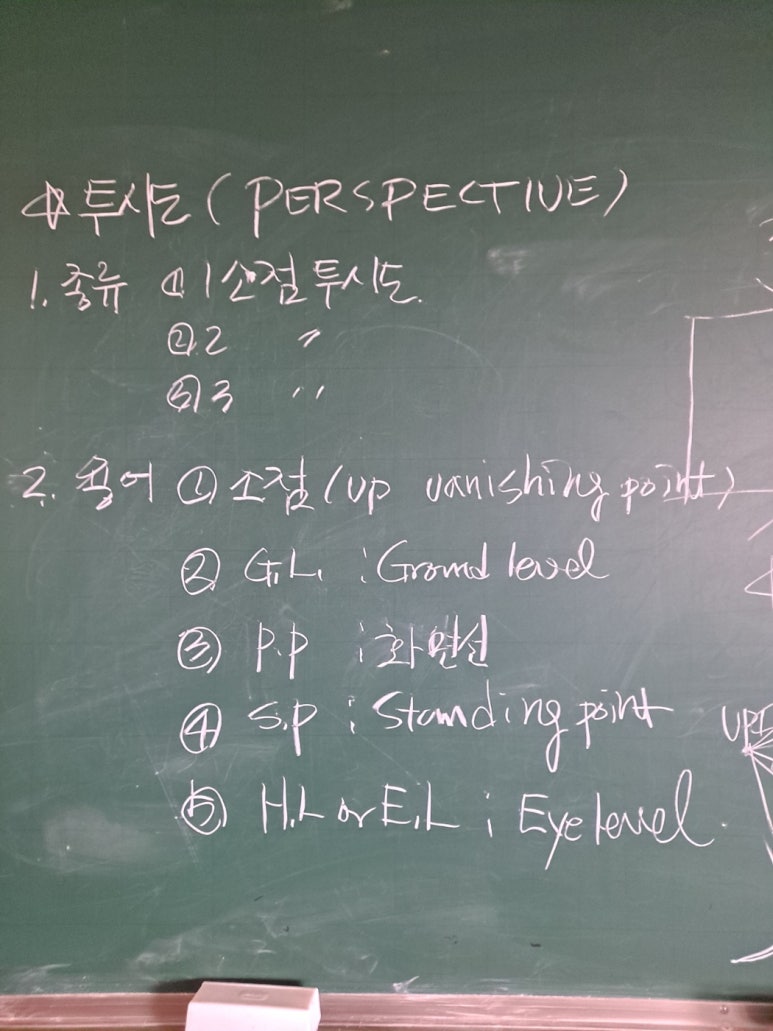 ☆ 투시도 (PERSPECTIVE)
1. 종류 ① 1소점 투시도.
② 2 〃
③ 3 〃
2. 용어 ① 소점 (VP vanishing point)
② G.L. : Ground level
③ P.P : 화면선
④ S.P : Standing point
⑤ H.L or E.L : Eye level